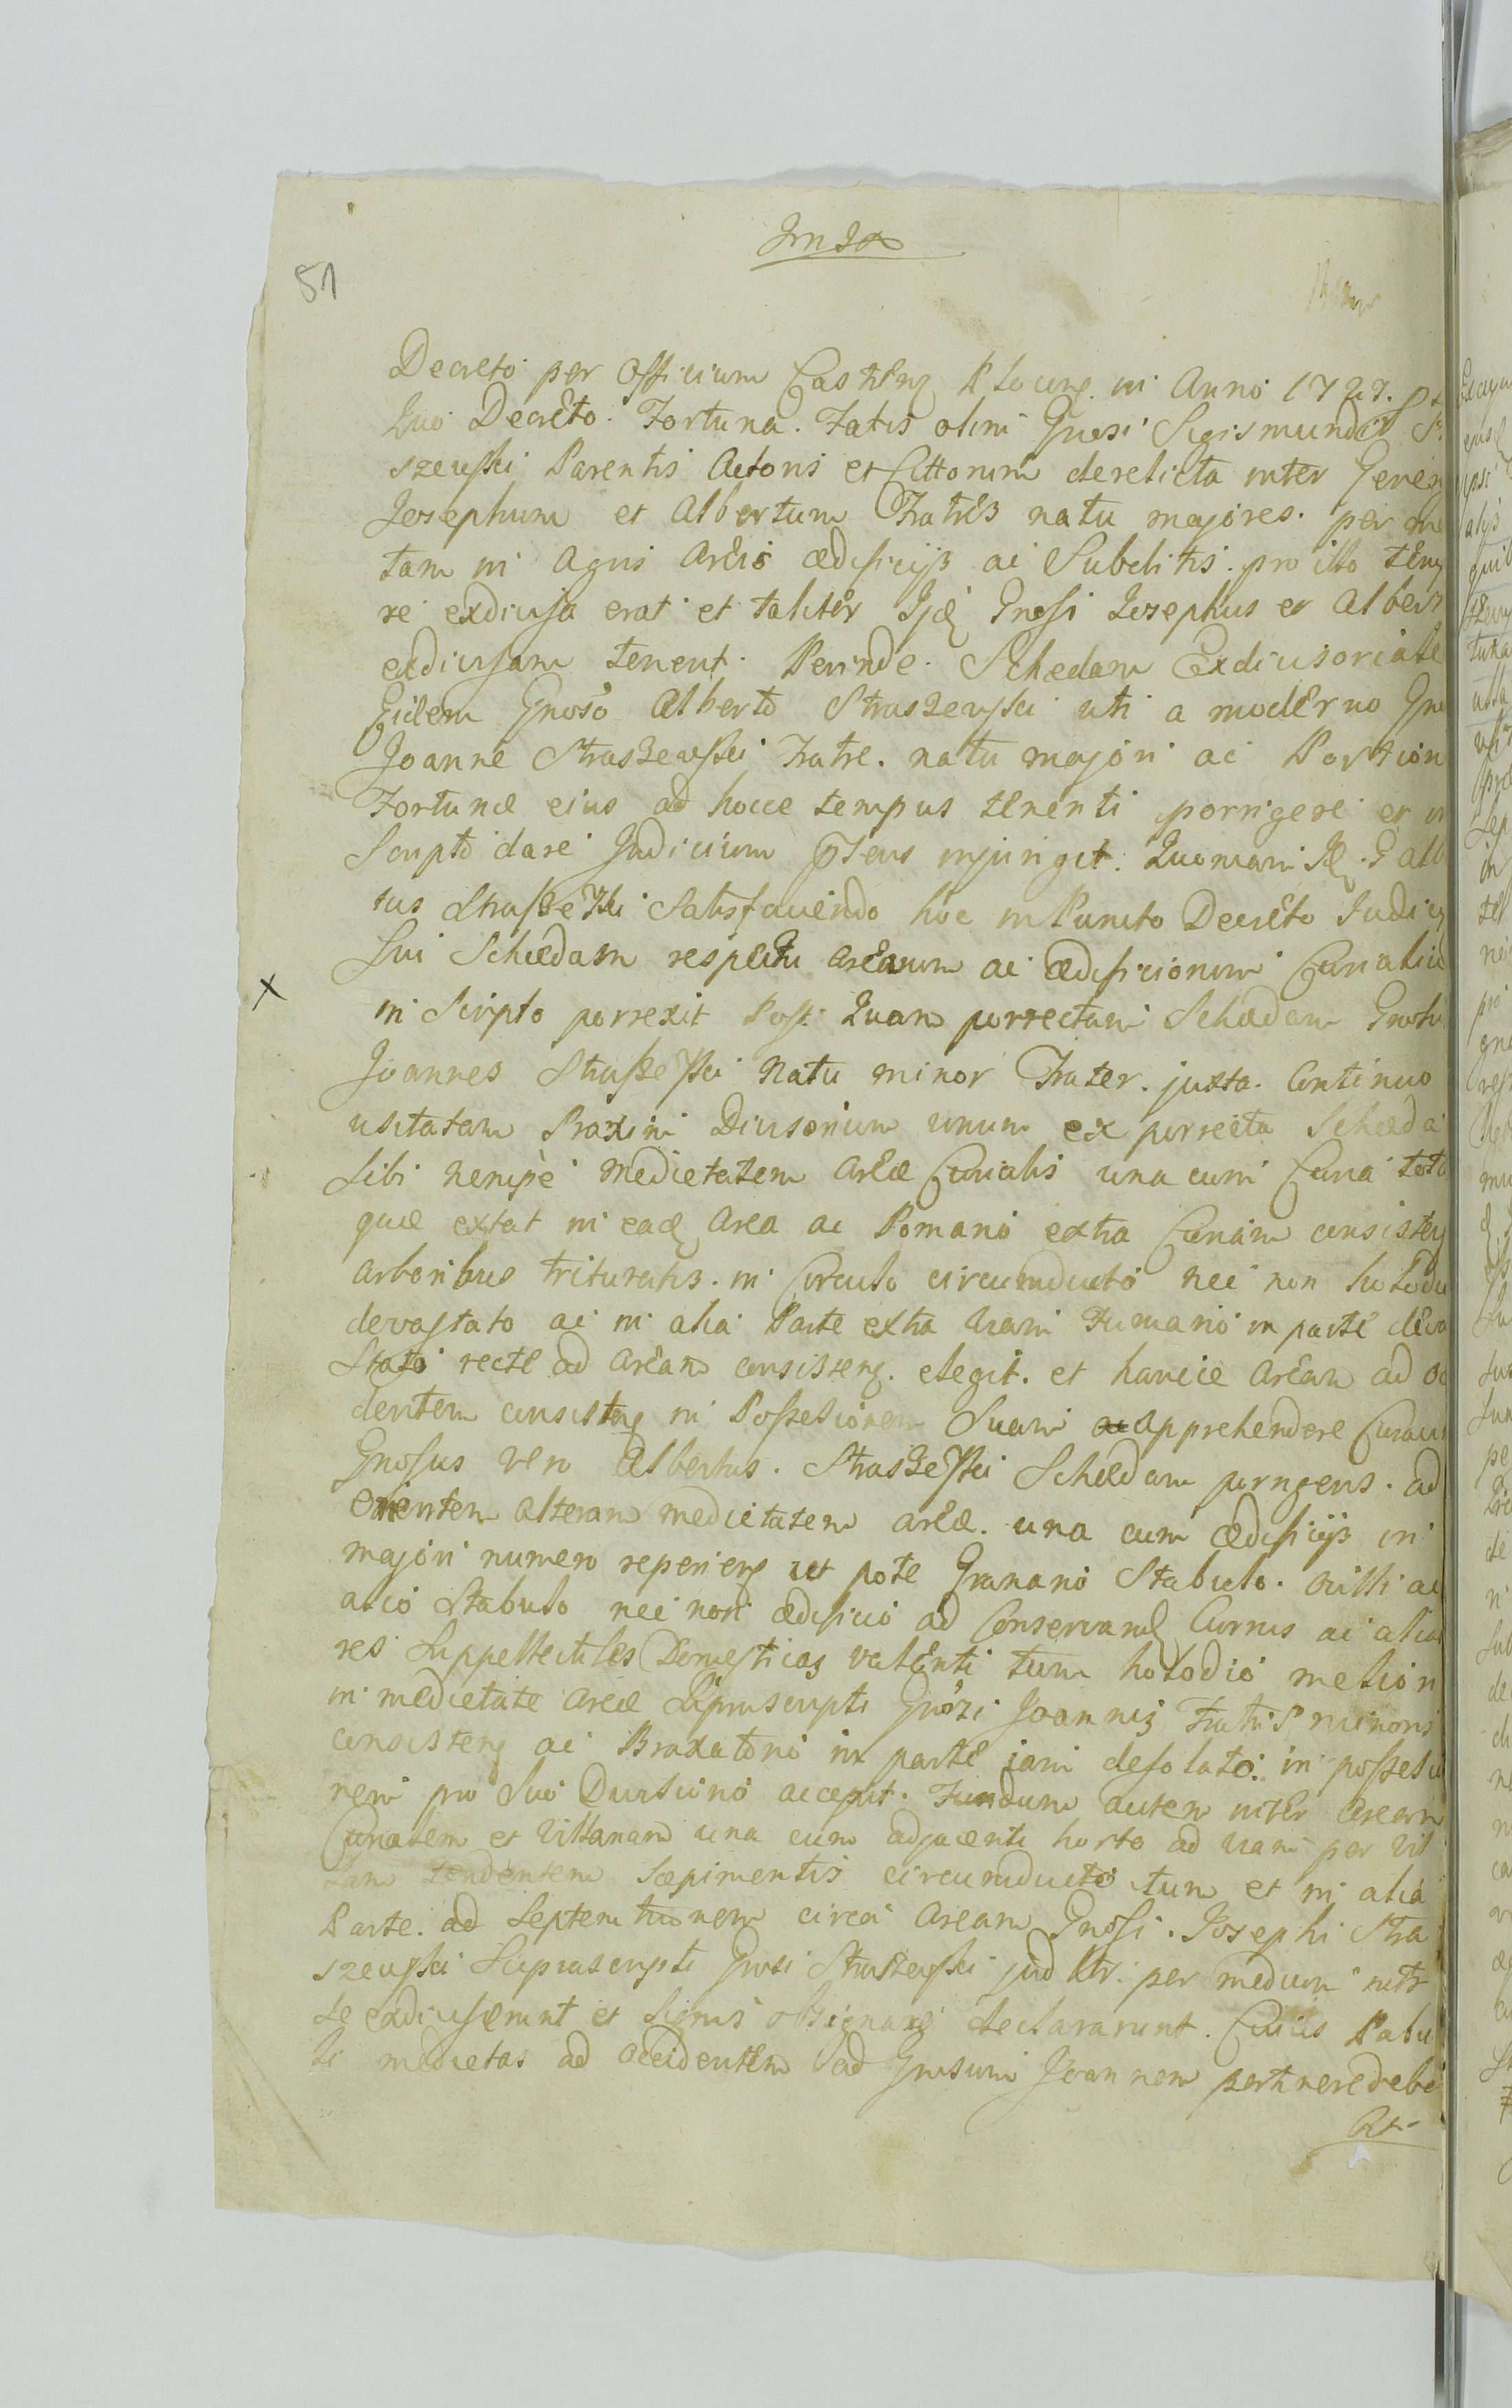 51
Decreto per Officium Castren Plocen. in Anno 1727.
Quo Decreto. Fortuna. Fatis olim Gnosi Sigismundi
szewski Parentis Actoris et Cittorum derelicta inter Genero
Josephum et Albertum Fratres natu majores. per me
tam in Agris Areis ædificijs ac Subditis. pro illo temp
re exdivisa erat et taliter Ijdē Gnosi Josephus et Albert
exdivisam tenent. Perinde. Schedam Exdivisoriale
Eidem Gnoso Alberto Straszewski uti a moderno Gno
Joanne Straszewski Fratre. natu majori ac Portion
Fortunæ eius ad hocce tempus tenenti porrigere et in
Scripto dare Judicium pñs injungit. Quoniam G Alb
tus Straszewski Satisfaciendo hoc in Puncto Decreto Judicij
Sui Schædam respectu arearum ac ædificiorum Curialiu
X
in Scripto porrexit Post Quam porrectam Schædam Gnosus
Joannes Straszewski Natu minor Frater. juxta. Continuo
usitatam Praxim Divisorium unum ex porrecta Schæda
Sibi nempè medietatem areæ Curialis una cum Curia tota
quæ extat in eadē Area ac Pomario extra Curiam consisten
arboribus in Circulo circumducto nec non holodio
devastato ac in alia Parte extra viam Fumario in parte deva
stato recte ad aream consisten. elegit. et hancce aream ad oc
dentem consisten in Possesionem Suam apprehendere Curavit
Gnosus vero Albertus. Straszewski Schædam porrigens. ad
Orientem alteram medietatem areæ. una cum ædificijs in
majori numero reperien ut pote Granario Stabulo. Ovilli ac
alio Stabulo nec non ædificio ad Conservand Currus ac alias
res Suppellectiles Domesticas valenti tum holodio meliori
in medietate areæ Suprascripti Gnosi Joannis Fratris minoris
consisten ac Braxatorio in parte jam desolato. in possesio
nem pro Suo Divisorio accepit. Fundum autem inter Aream
Curialem et Villanam una cum adjacenti horto ad viam per vil
lam tendentem Sæpimentis circumducto tum et in alia
Parte. ad Septemtrionem circa Aream Gnosi. Josephi Stra
szewski Suprascripti Gnosi Straszewski per medium intr
se exdiviserunt et Signis obsignare declararunt. Cuius
medietas ad occidentem ad Gnosum Joannem pertinere debe